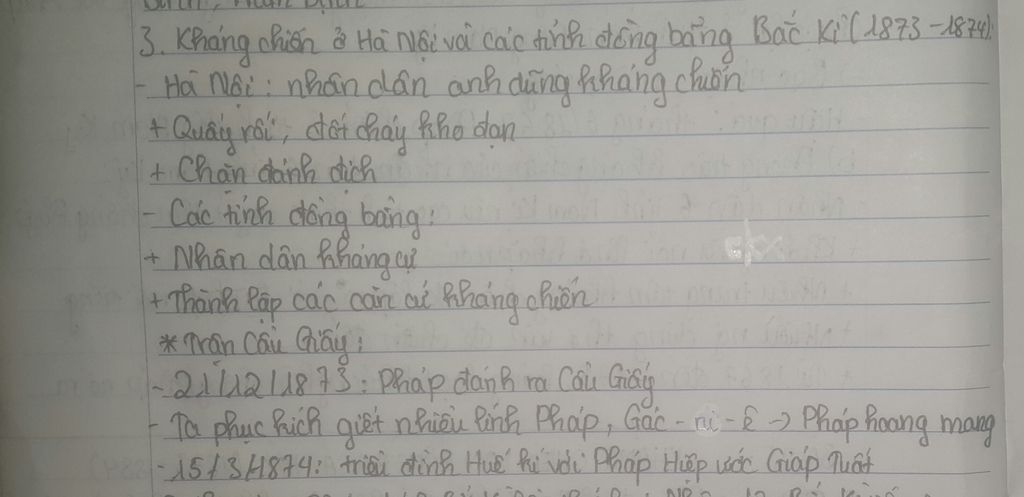 3. Kháng chiến ở Hà Nội và các tỉnh đồng bằng Bắc Kì (1873-1874).
- Hà Nội: nhân dân anh dũng kháng chiến
+ Quấy rối, đốt cháy kho đạn
+ Chặn đánh địch
- Các tỉnh đồng bằng:
+ Nhân dân kháng cự
+ Thành lập các căn cứ kháng chiến
* Trận Cầu Giấy:
- 21/12/1873: Pháp đánh ra Cầu Giấy
- Ta phục kích giết nhiều lính Pháp, Gác-ni-ê → Pháp hoang mang
- 15/3/1874: triều đình Huế kí với Pháp Hiệp ước Giáp Tuất